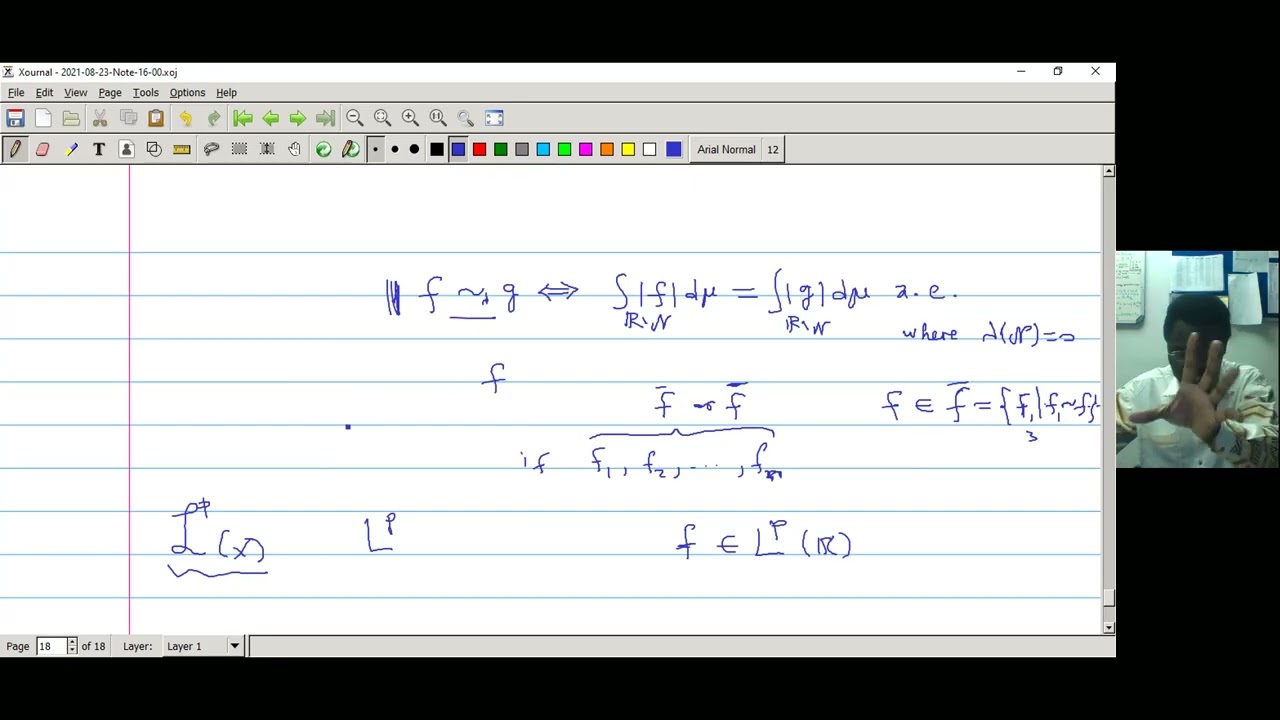 Xournal - 2021-08-23-Note-16-00.xoj
File Edit View Page Tools Options Help
Arial Normal 12
f ~λ g ⟺ ∫_{ℝ\N} |f| dμ = ∫_{ℝ\N} |g| dμ a.e.
where λ(N)=0
f
f̄ or f̄
f ∈ f̄ = {f₁ | f₁ ~ f}
if f₁, f₂, ..., fₙ
ℒᵖ(X) Lᵖ f ∈ Lᵖ(ℝ)
Page 18 of 18 Layer: Layer 1